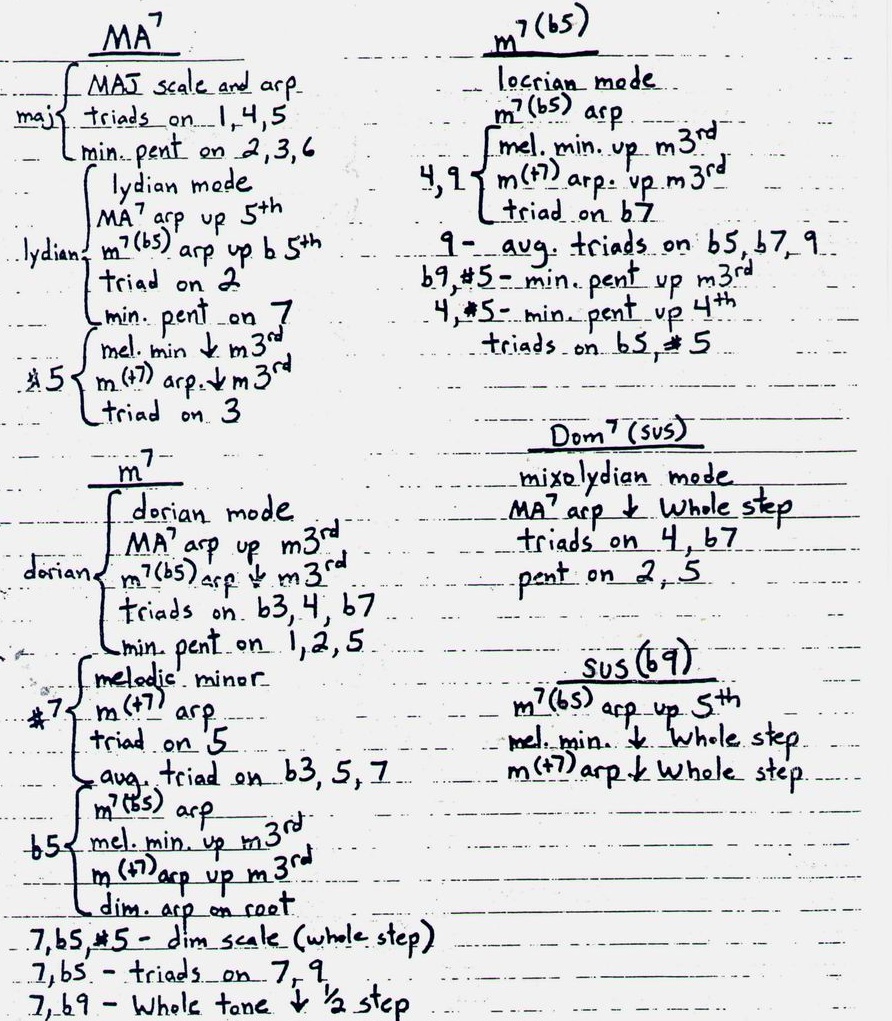 MA7
maj { MAJ scale and arp
triads on 1,4,5
min. pent on 2,3,6
lydian { lydian mode
MA7 arp up 5th
m7(b5) arp up b 5th
triad on 2
min. pent on 7
#5 { mel. min ↓ m3rd
m(+7) arp. ↓ m3rd
triad on 3
m7
dorian { dorian mode
MA7 arp up m3rd
m7(b5) arp ↓ m3rd
triads on b3, 4, b7
min. pent on 1,2,5
#7 { melodic minor
m(+7) arp
triad on 5
aug. triad on b3, 5, 7
b5 { m7(b5) arp
mel. min. up m3rd
m(+7) arp up m3rd
dim. arp on root
7, b5, #5 - dim scale (whole step)
7, b5 - triads on 7, 9
7, b9 - Whole tone ↓ 1/2 step
m7(b5)
locrian mode
m7(b5) arp
4,9 { mel. min. up m3rd
m(+7) arp. up m3rd
triad on b7
9 - aug. triads on b5, b7, 9
b9, #5 - min. pent up m3rd
4, #5 - min. pent up 4th
triads on b5, #5
Dom7 (sus)
mixolydian mode
MA7 arp ↓ Whole step
triads on 4, b7
pent on 2, 5
sus (b9)
m7(b5) arp up 5th
mel. min. ↓ Whole step
m(+7) arp ↓ Whole step